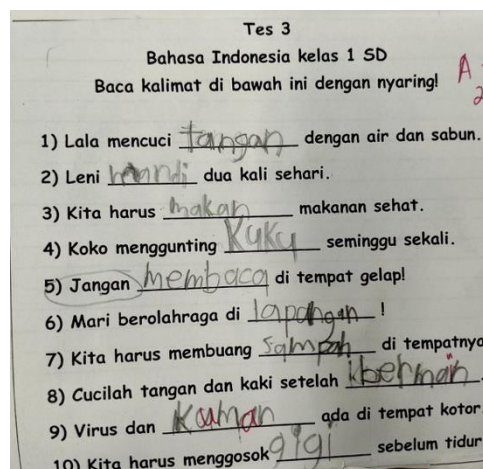 Tes 3
Bahasa Indonesia kelas 1 SD
Baca kalimat di bawah ini dengan nyaring!
A
2
1) Lala mencuci tangan dengan air dan sabun.
2) Leni mandi dua kali sehari.
3) Kita harus makan makanan sehat.
4) Koko menggunting Kuku seminggu sekali.
5) Jangan membaca di tempat gelap!
6) Mari berolahraga di lapangan!
7) Kita harus membuang sampah di tempatnya
8) Cucilah tangan dan kaki setelah bermain.
9) Virus dan Kuman ada di tempat kotor
10) Kita harus menggosok gigi sebelum tidur